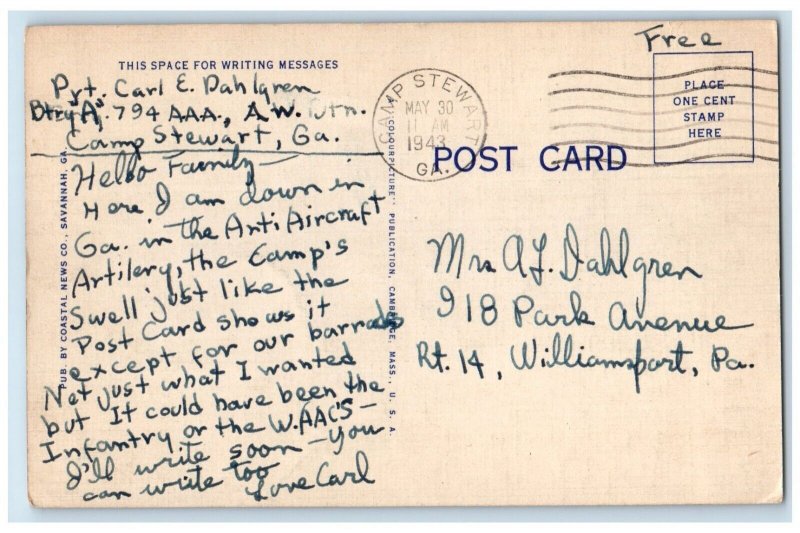 THIS SPACE FOR WRITING MESSAGES
Pvt. Carl E. Dahlgren
Btry "A", 794 AAA., A.W. Btn.
Camp Stewart, Ga.
Hello Family—
Here I am down in
Ga. in the Anti Aircraft
Artilery, the Camp's
swell just like the
Post Card shows it
except for our barracks
Not just what I wanted
but It could have been the
Infantry or the W.AAC'S—
I'll write soon—you
can write too
Love Carl
PUB. BY COASTAL NEWS CO., SAVANNAH, GA.
"COLOURPICTURE" PUBLICATION, CAMBRIDGE, MASS., U.S.A.
CAMP STEWART
MAY 30
11 AM
1943
GA.
POST CARD
Free
PLACE
ONE CENT
STAMP
HERE
Mrs A.L. Dahlgren
918 Park Avenue
Rt. 14, Williamsport, Pa.